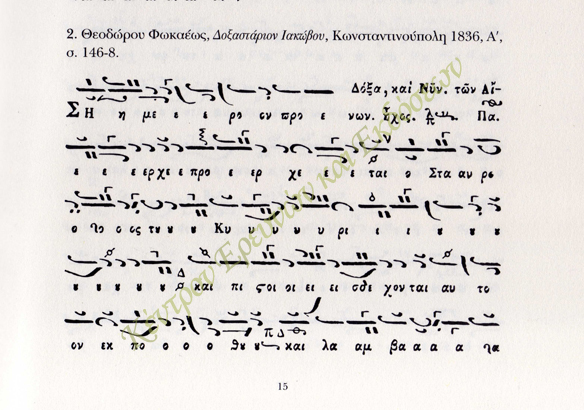 2. Θεοδώρου Φωκαέως, Δοξαστάριον Ιακώβου, Κωνσταντινούπολη 1836, Α',
σ. 146-8.
Δόξα, καὶ Νῦν. τῶν Αἴ-
Ση η με ε ε ρο ον προ ε νων. ἦχος. Πα.
ε ε ε ερ χε ε προ ε ερ χε ε ε ται ο Στα αυ ρο
ο ο ο ος του ου Κυ υ υ υ ρι ι ι
και πι στοι οι ει ει σδε χονται αυ το
ον εκ πο ο ο ο θου και λα αμ βα α α α
15
Κέντρον Ερευνών και Εκδόσεων